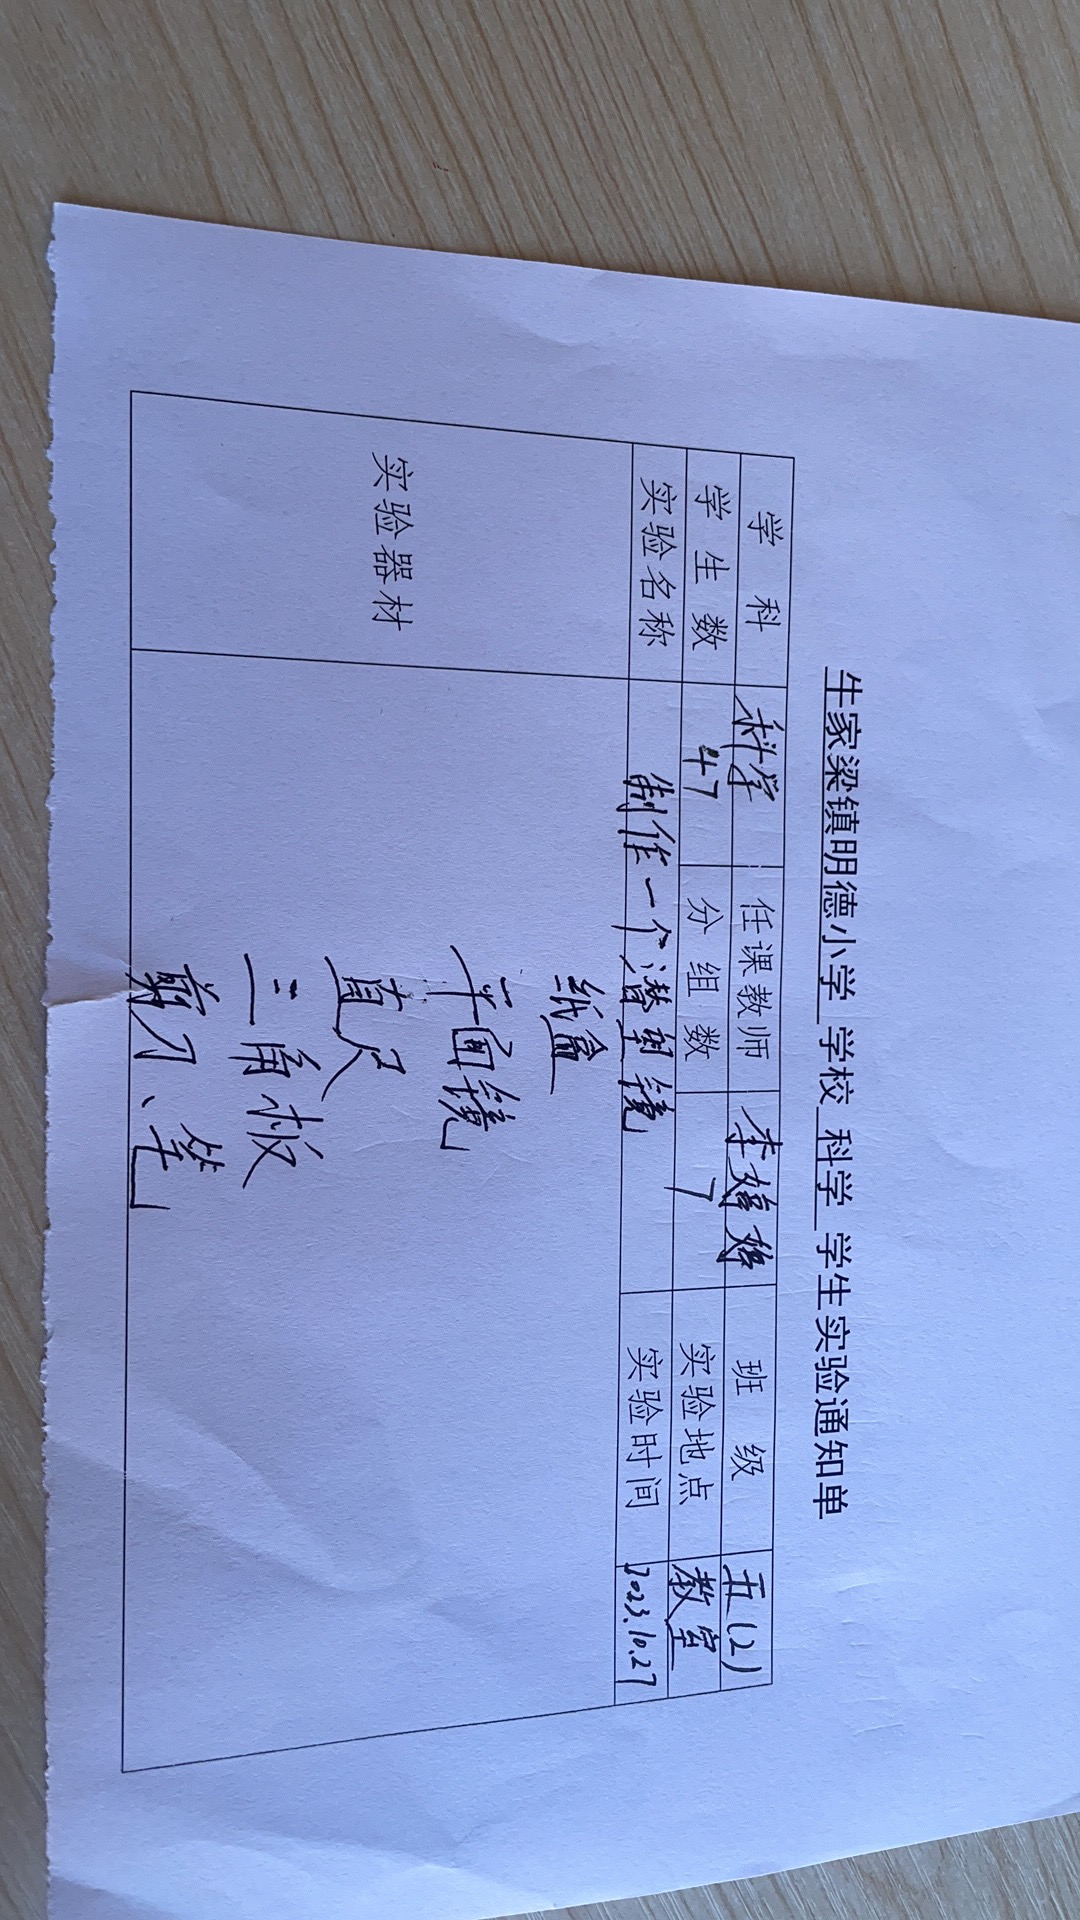 牛家梁镇明德小学 学校 科学 学生实验通知单
学 科 科学 任课教师 李婷婷 班 级 五(2)
学 生 数 47 分 组 数 7 实验地点 教室
实验名称 制作一个潜望镜 实验时间 2023.10.27
实验器材
纸盒
平面镜
直尺
三角板
剪刀、笔